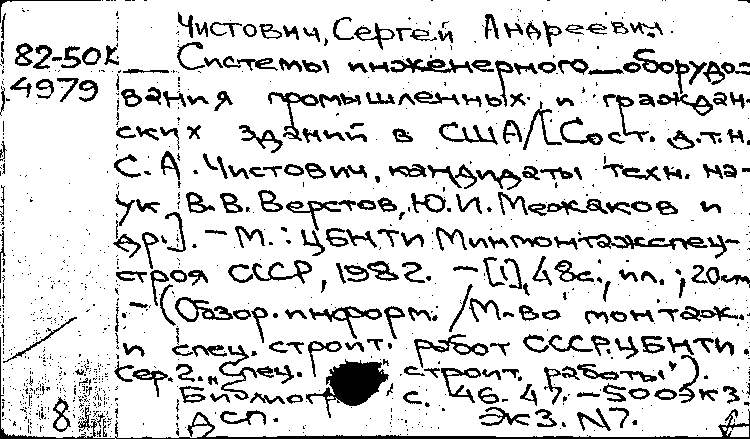 Чистович, Сергей Андреевич.
82-50К Системы инженерного оборудо-
4979 вания промышленных и граждан-
ских зданий в США/[Сост. д.т.н.
С.А. Чистович, кандидаты техн. на-
ук В.В. Верстов, Ю.И. Межаков и
др.]. - М.: ЦБНТИ Минмонтажспец-
строя СССР, 1982. - [1], 48 с., ил.; 20 см
. - (Обзор. информ. / М-во монтаж.
и спец. строит. работ СССР. ЦБНТИ.
Сер. 2. "Спец. строит. работы").
Библиогр с. 46-47. - 500 экз.
8 ДСП. Экз. N7.